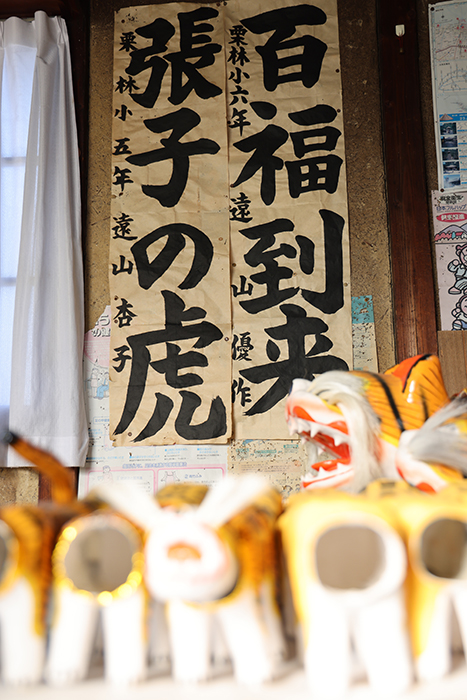 百福到来
栗林小六年 遠山優作
張子の虎
栗林小五年 遠山杏子